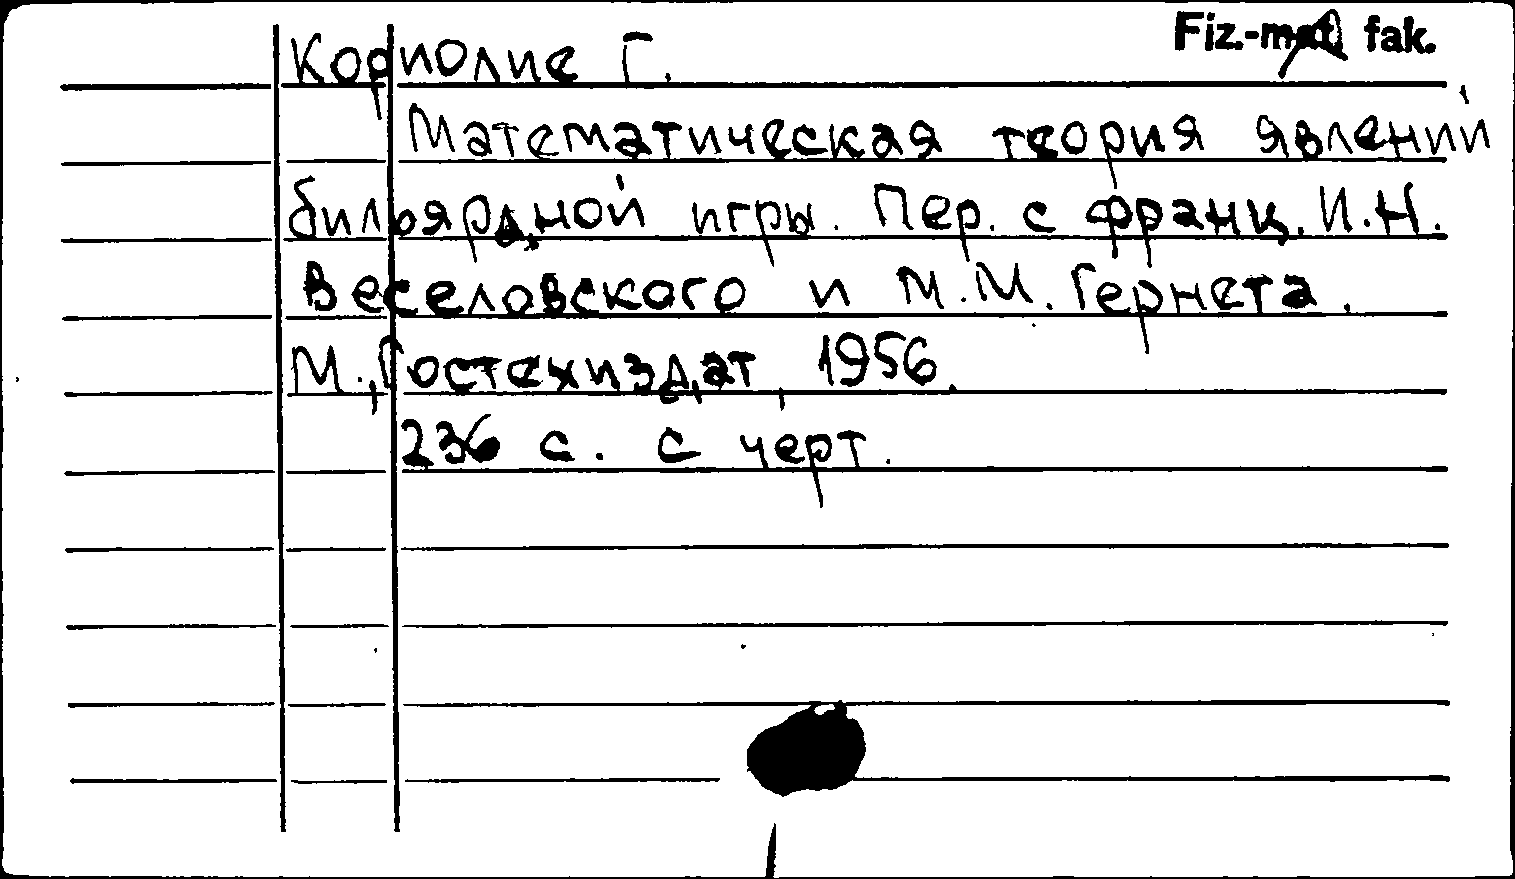 Fiz.-mat. fak.
Кориолис Г.
Математическая теория явлений
бильярдной игры. Пер. с франц. И.Н.
Веселовского и М.М. Гернета.
М., Гостехиздат, 1956.
236 с. с черт.